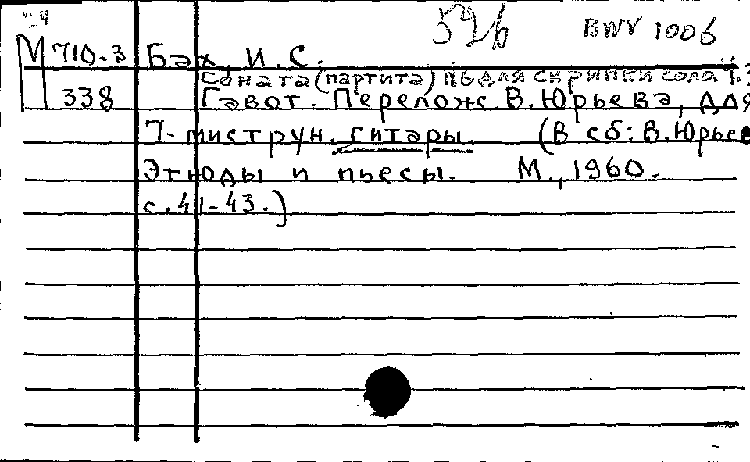 526 BWV 1006
М 710-3 Бах, И.С.
Соната (партита) №6 для скрипки соло
338 Гавот. Перелож. В.Юрьева, для
7-миструн. гитары. (В сб: В.Юрьев
Этюды и пьесы. М., 1960.
с. 41-43.)